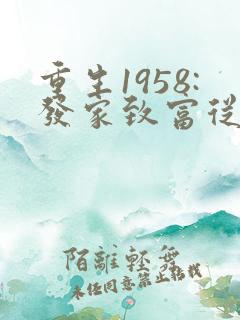 重生1958:
發家致富從
陌離輕舞
未经同意禁止转载